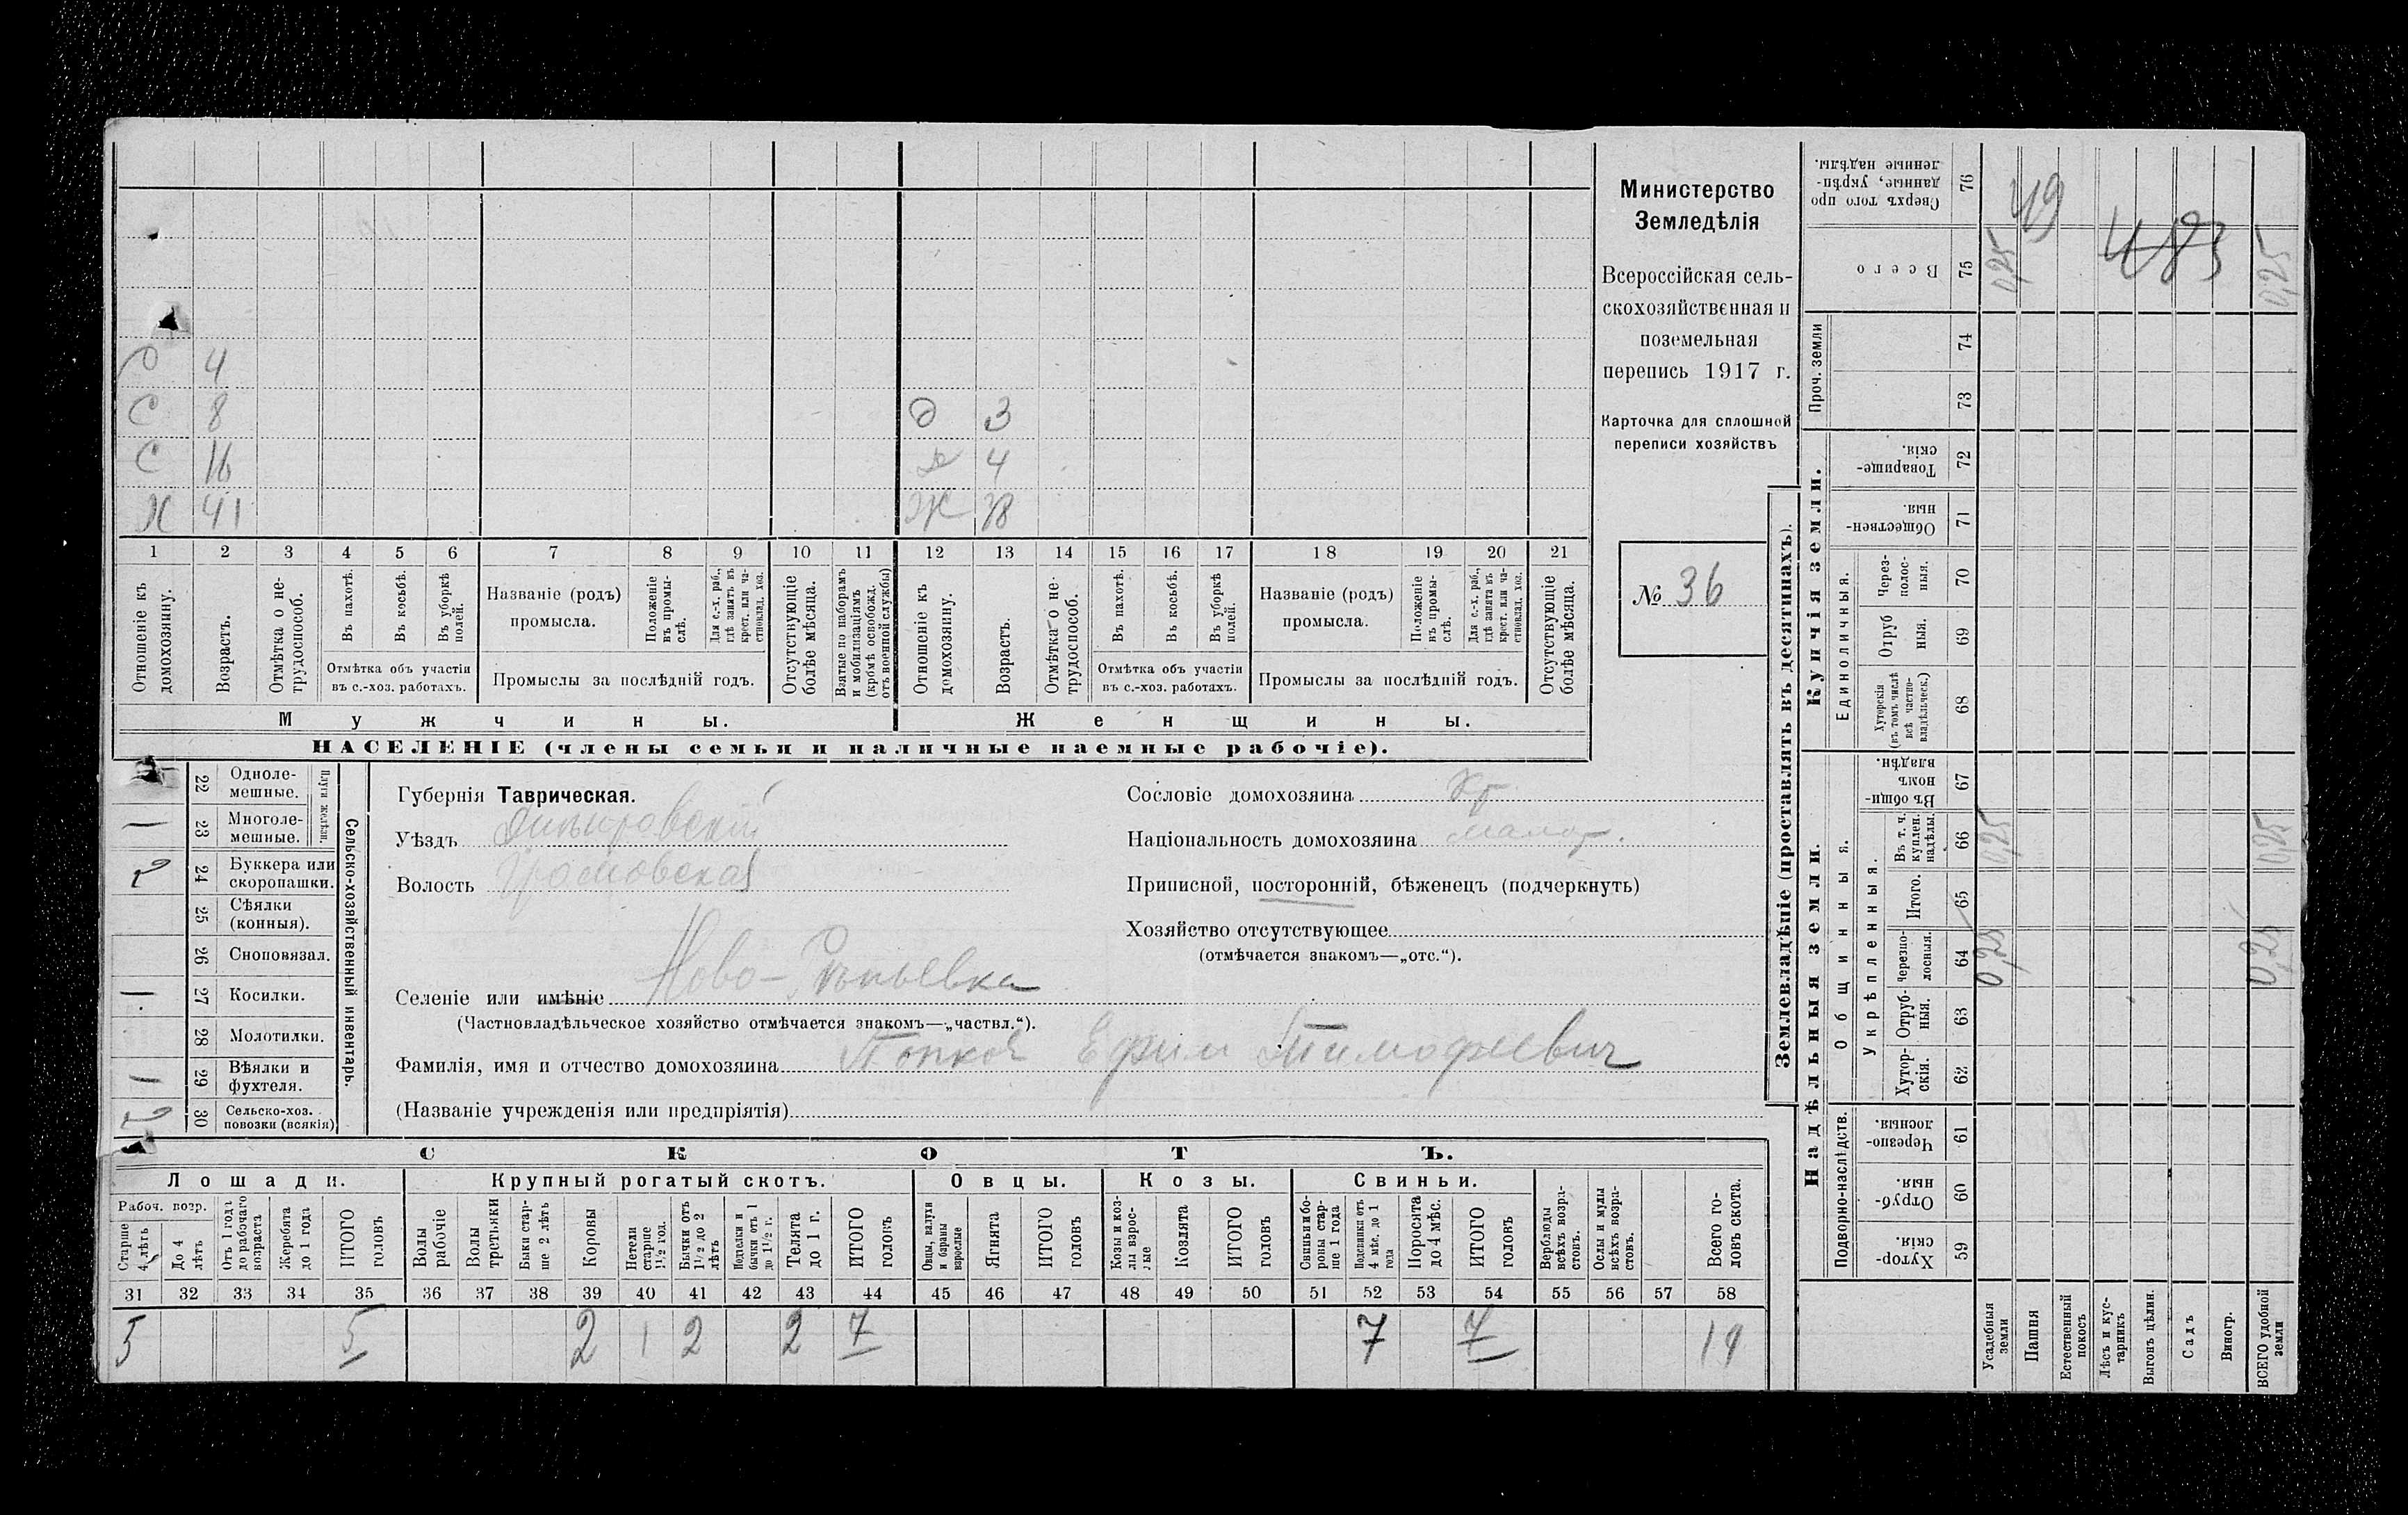 О 4
С 8 Д 3
С 16 Д 4
Х 41 Ж 38
1 2 3 4 5 6 7 8 9 10 11 12 13 14 15 16 17 18 19 20 21
Отношеніе къ домохозяину.
Возрастъ.
Отмѣтка о нетрудоспособ.
Въ пахотѣ.
Въ косьбѣ.
Въ уборкѣ полей.
Отмѣтка объ участіи
въ с.-хоз. работахъ.
Названіе (родъ)
промысла.
Положеніе въ промыслѣ.
Для с.-х. раб., гдѣ занятъ въ крест. или частновлад. хоз.
Промыслы за послѣдній годъ.
Отсутствующіе болѣе мѣсяца.
Взятые по наборамъ и мобилизаціямъ (кромѣ освобожд. отъ военной службы)
Отношеніе къ домохозяину.
Возрастъ.
Отмѣтка о нетрудоспособ.
Въ пахотѣ.
Въ косьбѣ.
Въ уборкѣ полей.
Отмѣтка объ участіи
въ с.-хоз. работахъ.
Названіе (родъ)
промысла.
Положеніе въ промыслѣ.
Для с.-х. раб., гдѣ занята въ крест. или частновлад. хоз.
Промыслы за послѣдній годъ.
Отсутствующіе болѣе мѣсяца.
Мужчины. Женщины.
НАСЕЛЕНІЕ (члены семьи и наличные наемные рабочіе).
Министерство
Земледѣлія
Всероссійская сель-
скохозяйственная и
поземельная
перепись 1917 г.
Карточка для сплошной
переписи хозяйствъ
№ 36
Сельско-хозяйственный инвентарь.
Плуги желѣзн.
22 Одноле-
мешные.
1 23 Многоле-
мешные.
2 24 Буккера или
скоропашки.
25 Сѣялки
(конныя).
26 Сноповязал.
1 27 Косилки.
28 Молотилки.
1 29 Вѣялки и
фухтеля.
2 30 Сельско-хоз.
повозки (всякія)
Губернія Таврическая.
Уѣздъ Днѣпровскій
Волость Громовская
Селеніе или имѣніе Ново-
(Частновладѣльческое хозяйство отмѣчается знакомъ—„частвл.“).
Фамилія, имя и отчество домохозяина Попков Ефим Тимофеевич
(Названіе учрежденія или предпріятія)
Сословіе домохозяина Кр
Національность домохозяина малор.
Приписной, посторонній, бѣженецъ (подчеркнуть)
Хозяйство отсутствующее
(отмѣчается знакомъ—„отс.“).
СКОТЪ.
Лошади. Крупный рогатый скотъ. Овцы. Козы. Свиньи.
Рабоч. возр.
Старше 4 лѣтъ
До 4 лѣтъ
Отъ 1 года до рабочаго возраста
Жеребята до 1 года
ИТОГО головъ
Волы рабочіе
Волы третьяки
Быки старше 2 лѣтъ
Коровы
Нетели старше 1½ год.
Бычки отъ 1½ до 2 лѣтъ
Подтелки и бычки отъ 1 до 1½ г.
Телята до 1 г.
ИТОГО головъ
Овцы, валухи и бараны взрослые
Ягнята
ИТОГО головъ
Козы и козлы взрослые
Козлята
ИТОГО головъ
Свиньи и боровы старше 1 года
Подсвинки отъ 4 мѣс. до 1 года
Поросята до 4 мѣс.
ИТОГО головъ
Верблюды всѣхъ возрастовъ.
Ослы и мулы всѣхъ возрастовъ.
Всего головъ скота.
31 32 33 34 35 36 37 38 39 40 41 42 43 44 45 46 47 48 49 50 51 52 53 54 55 56 57 58
5 5 2 1 2 2 7 7 7 19
Землевладѣніе (проставлять въ десятинахъ).
Сверхъ того проданные, укрѣпленные надѣлы. 76
Всего 75 0,25 0,25
49
483
Проч. земли
74
73
Купчія земли.
Товарищескія. 72
Общественныя. 71
Единоличныя.
Черезполосныя. 70
Отрубныя. 69
Хуторскія (въ томъ числѣ всѣ частновладѣльческ.) 68
Надѣльныя земли.
Общинныя.
Въ общинномъ владѣн. 67
Укрѣпленныя.
Въ т. ч. куплен. надѣлы. 66 0,25 0,25
Итого. 65
Черезполосныя. 64 0,25 0,25
Отрубныя. 63
Хуторскія. 62
Подворно-наслѣдств.
Черезполосныя. 61
Отрубныя. 60
Хуторскія. 59
Усадебныя земли
Пашня
Естественный покосъ
Лѣсъ и кустарникъ
Выгонъ цѣлин.
Садъ
Виногр.
ВСЕГО удобной земли